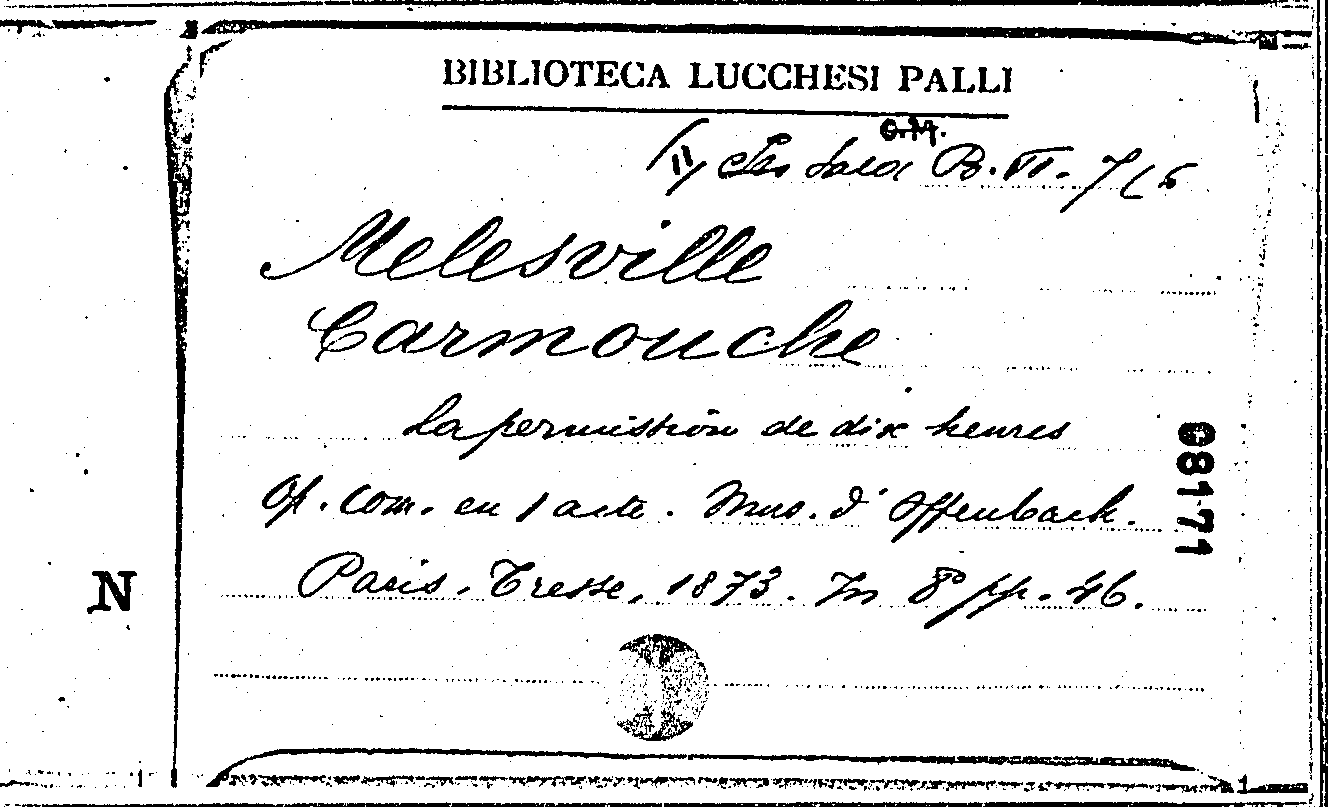 BIBLIOTECA LUCCHESI PALLI
G.M.
Sala B. VI. 7(6
Melesville
Carmouche
La permission de dix heures
Op. com. en 1 acte. Mus. d'Offenbach.
Paris, Tresse, 1873. In 8° pp. 46.
68171
N
1